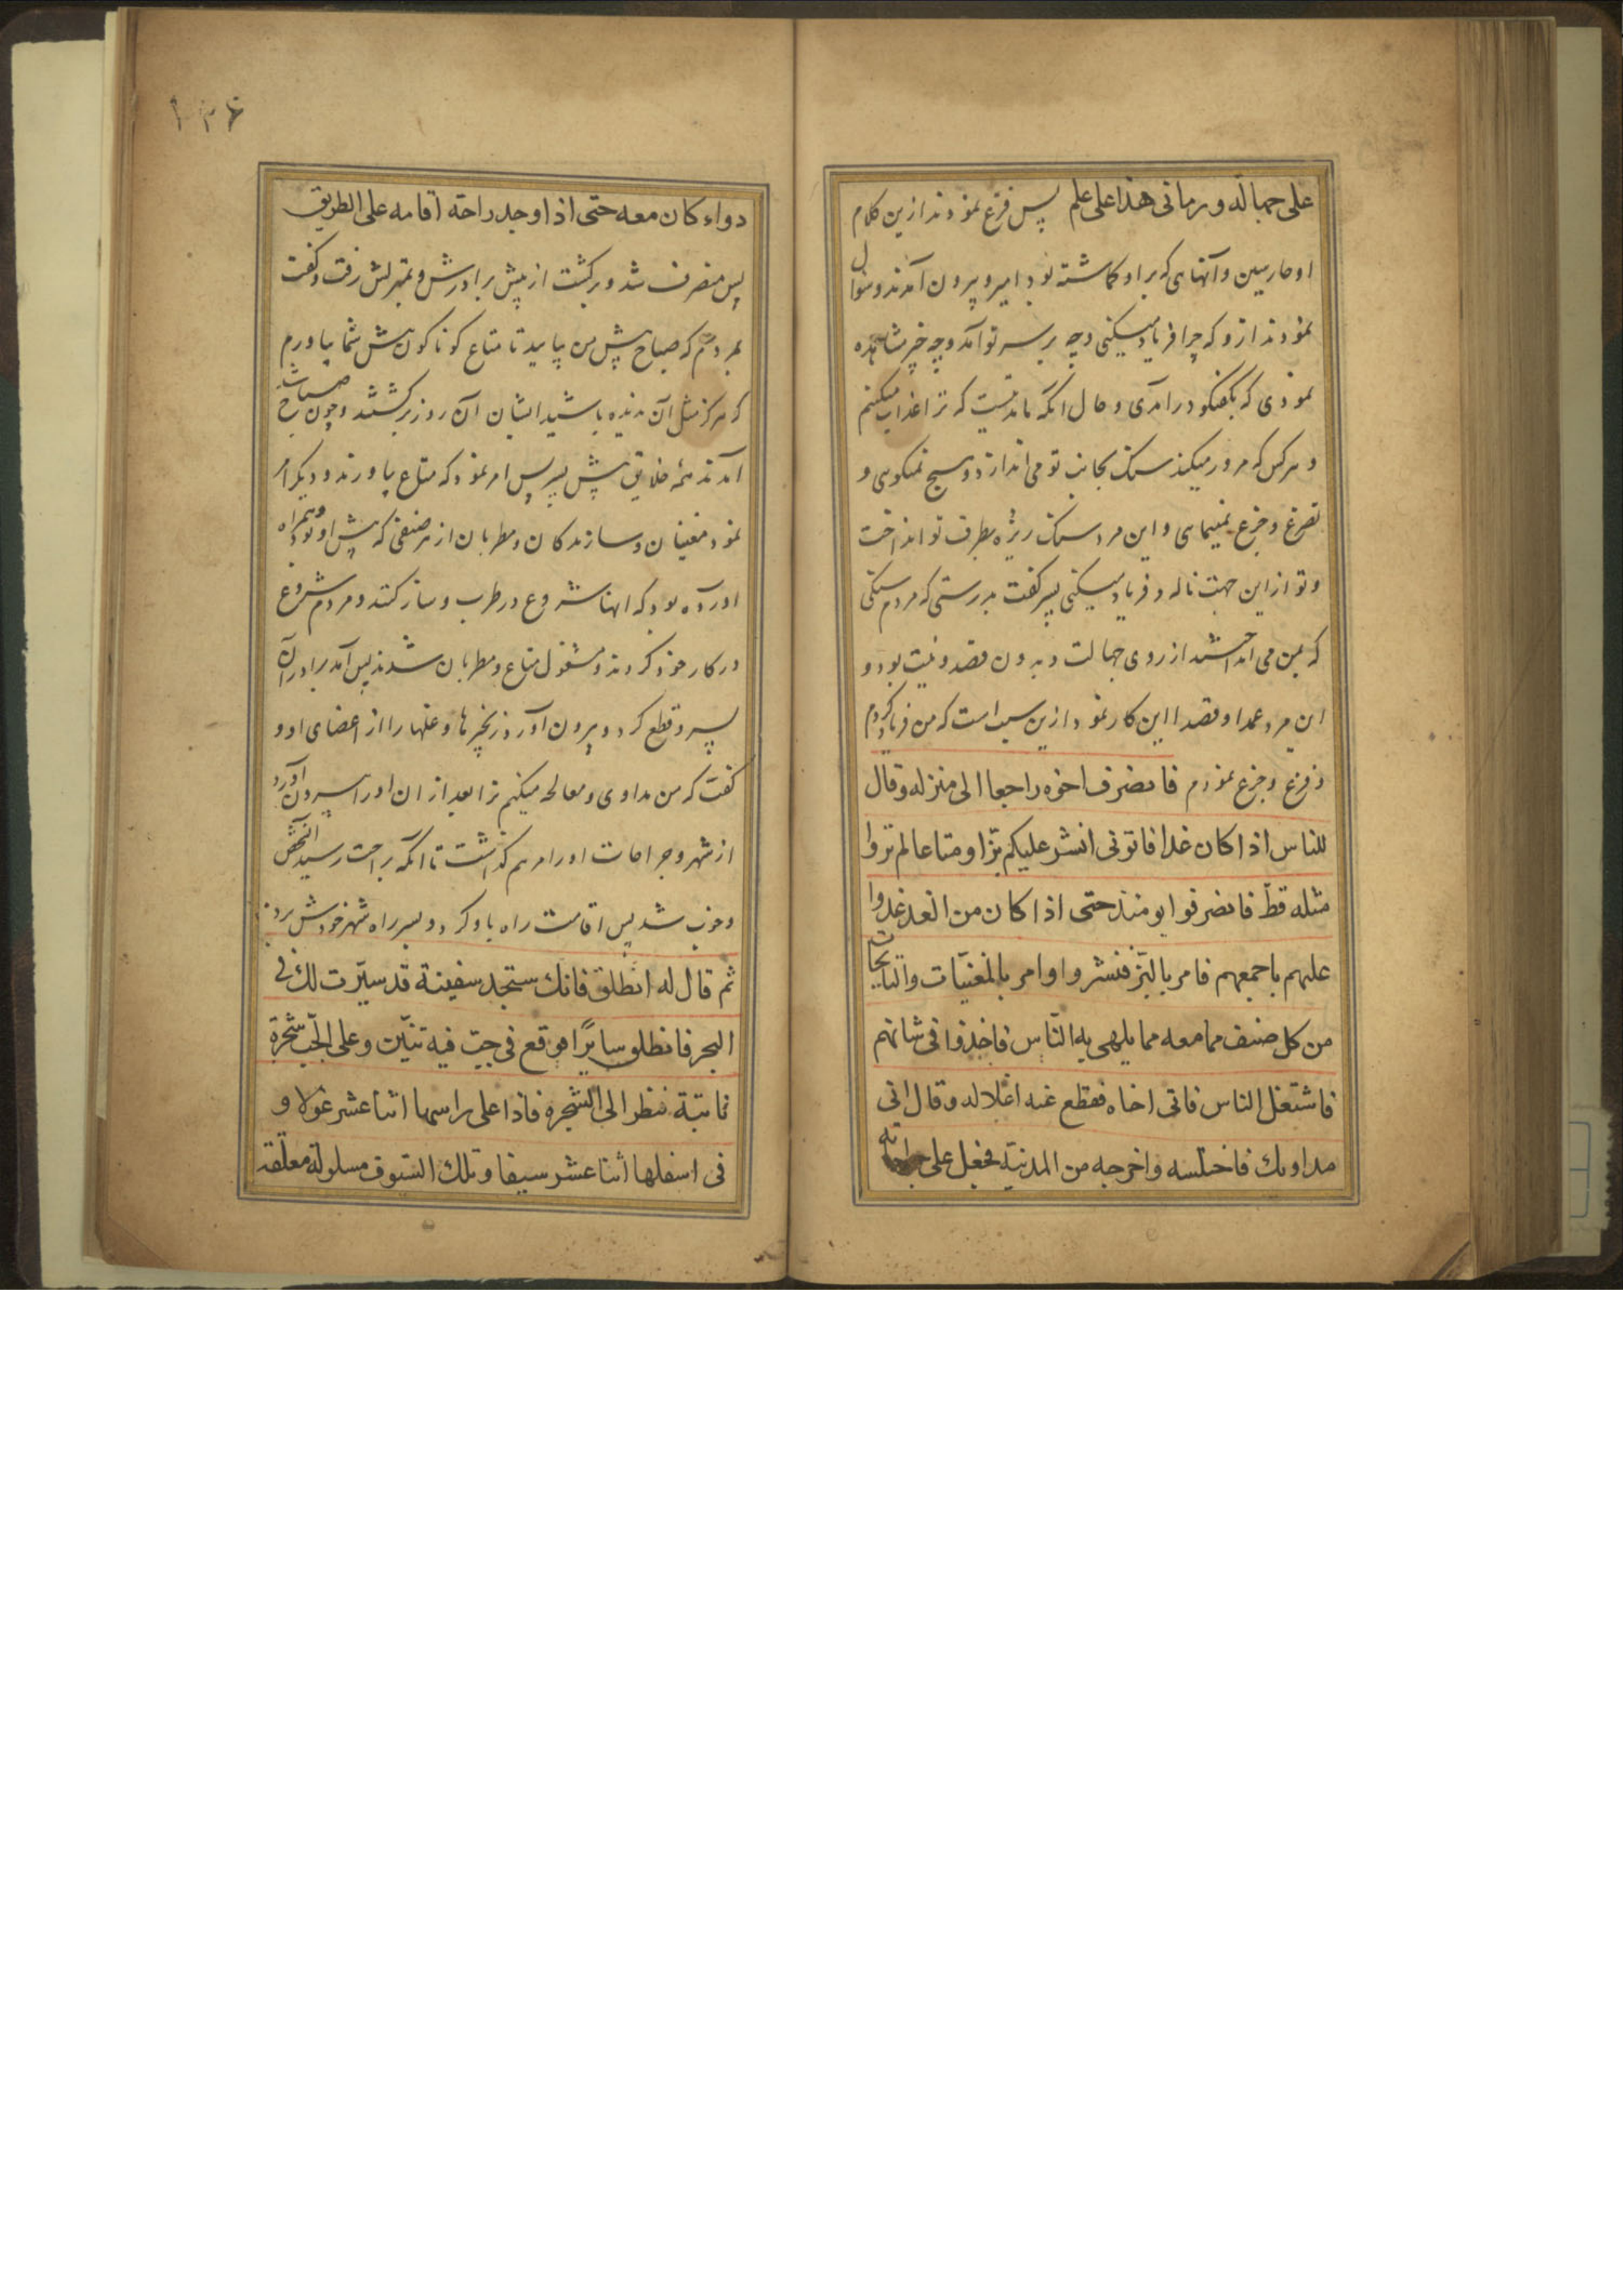 على جهالة ورمانى هذا على علم پس فزع نمودند ازین کلام
او حارسین و آنهایی که بر او گماشته بود امیر و بیرون آمدند و سؤال
نمودند ازو که چرا فریاد میکنی و چه بر سر تو آمد و چه خبر مشاهده
نمودی که بگفتگو درآمدی و حال آنکه ماندتیست که ترا عذاب میکنیم
و هرکس که مرور میکند سنگ بجانب تو می اندازد و هیچ نمیگویی و
تضرع و جزع نمینمایی و این مرد سنگ ریزه بطرف تو انداخت
و تو از این جهت ناله و فریاد میکنی پسر گفت بدرستی که مردم سنگی
که بمن می انداختند از روی جهالت و بدون قصد و نیت بود و
این مرد عمدا و قصدا این کار نمود ازین سبب است که من فریاد کردم
و فزع و جزع نمودم فانصرف اخوه راجعا الى منزله وقال
للناس اذا كان غدا فاتونى انشر عليكم بزّا ومتاعا لم تروا
مثله قطّ فانصرفوا يومئذ حتى اذا كان من الغد غدوا
عليهم باجمعهم فامر بالبزّ فنشروا وامر بالمغنيّات والنايحات
من كل صنف مما معه مما يلهى به النّاس فاخذوا فى شانهم
فاشتغل الناس فاتى اخاه فقطع عنه اغلاله وقال انى
مداويك فاختلسه واخرجه من المدينة فجعل على جراحاته
۱۳۶
دواء كان معه حتى اذا وجد راحة اقامه على الطريق
پس منصرف شد و برگشت از پیش برادرش و بمنزلش رفت و گفت
بمردم که صباح پیش من بیایید تا متاع گوناگون پیش شما بیاورم
که هرگز مثل آن ندیده باشید ایشان آن روز برگشتند و چون صباح شد
آمدند همه خلایق پیش پسر پس امر نمود که متاع بیاورند و دیگر امر
نمود مغنیان و سازندگان و مطربان از هر صنفی که پیش او بود و همراه
آورده بود که اینها شروع در طرب و ساز کنند و مردم شروع
در کار خود کردند و مشغول متاع و مطربان شدند پس آمد برادر آن
پسر و قطع کرد و بیرون آورد زنجیرها و غلها را از اعضای او و
گفت که من مداوی و معالجه میکنم ترا بعد از ان او را بیرون آورد
از شهر و جراحات او را مرهم گذاشت تا آنکه براحت رسید آنشخص
و خوب شد پس اقامت راه باو کرد و بر سر راه شهر خودش برد
ثم قال له انطلق فانك ستجد سفينة قد سيّرت لك فى
البحر فانطلق سايرًا فوقع فى جبّ فيه تنّين وعلى الجّب شجرة
نابتة فنظر الى الشجرة فاذا على راسها اثنا عشر غولا و
فى اسفلها اثنا عشر سيفا وتلك السّيوف مسلولة معلّقة